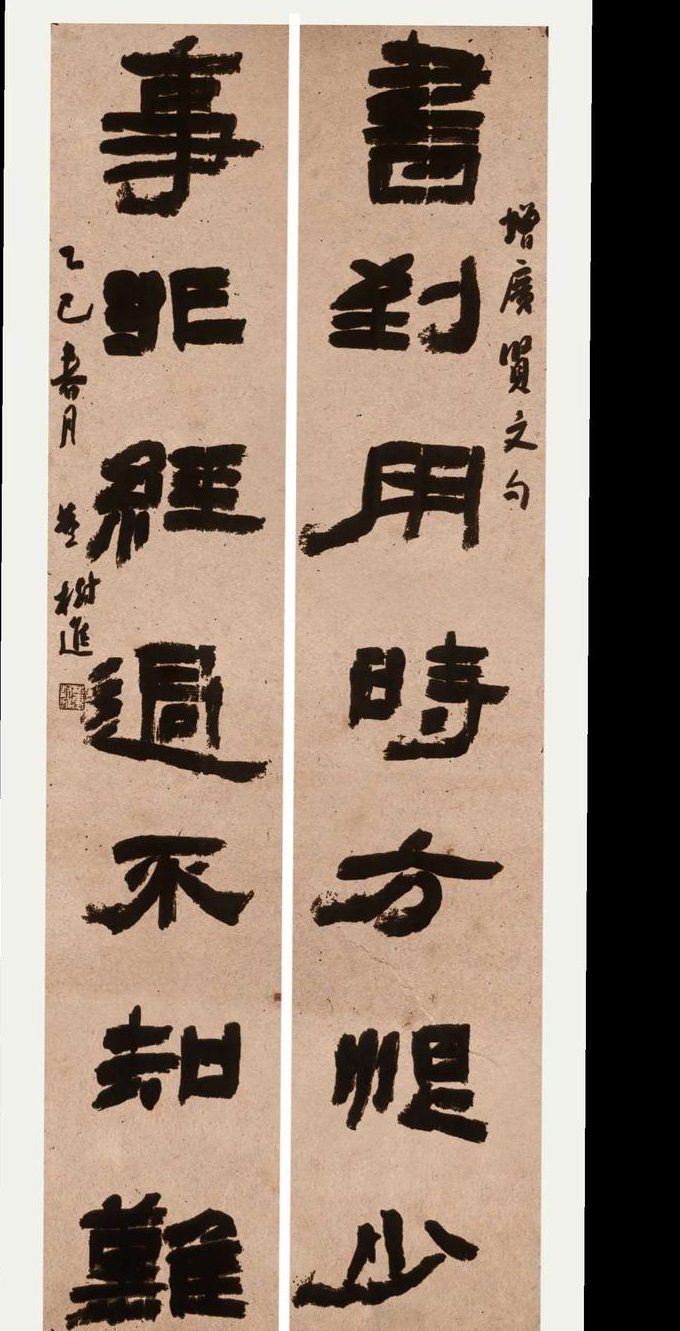 增廣賢文句
書到用時方恨少
事非經過不知難
乙巳春月
樹進